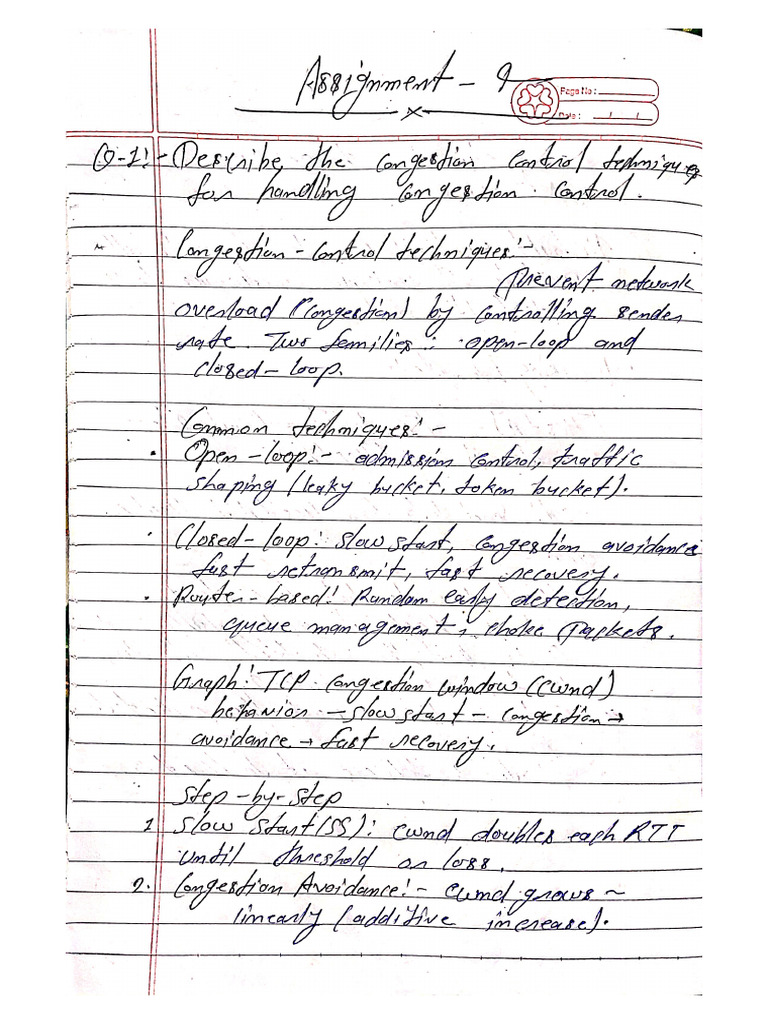 Assignment - 9
Page No :
Date : / /
Q-1:- Describe the congestion control techniques
for handling congestion control.
Congestion-control techniques:-
Prevent network
overload (congestion) by controlling sender
rate. Two families: open-loop and
closed-loop.
Common techniques:-
• Open-loop:- admission control, traffic
shaping (leaky bucket, token bucket).
• Closed-loop: slow start, congestion avoidance
fast retransmit, fast recovery.
• Router-based: Random early detection,
queue management, choke packets.
Graph: TCP congestion window (cwnd)
behavior - slow start - congestion →
avoidance → fast recovery.
Step-by-step
1 Slow start (SS): cwnd doubles each RTT
until threshold or loss.
2. Congestion Avoidance:- cwnd grows ~
linearly (additive increase).